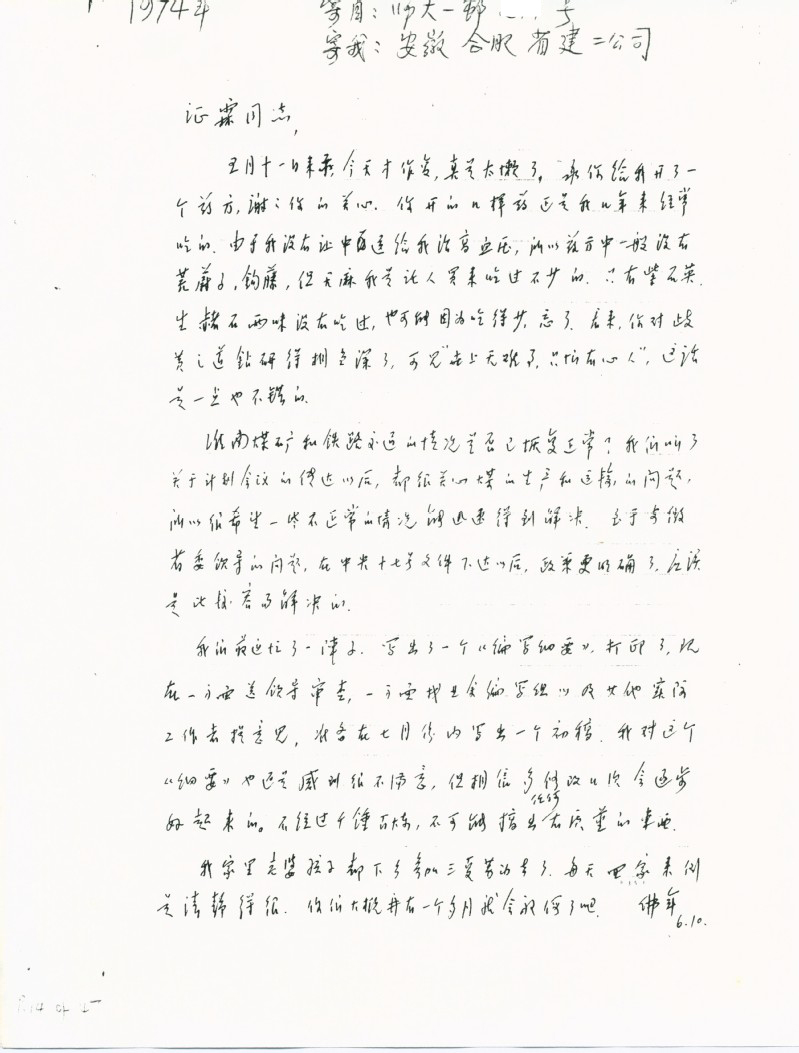 1974年
寄自：师大一村 号
寄我：安徽合肥省建二公司
证霖同志，
五月十一日来承，今天才作复，真是太懒了。承你给我开了一
个药方，谢谢你的关心。你开的几样药还是我几年来经常
吃的。由于我没有证中再送给我治高血压，所以药方中一般没有
，钩藤，但天麻我是托人买来吃过不少的。只有紫石英、
生赭石两味没有吃过，也可能因为吃得少，忘了。看来，你对岐
黄之道钻研得相当深了，可见“世上无难事，只怕有心人”，这话
是一点也不错的。
淮南煤矿和铁路交通的情况是否已恢复正常？我们听了
关于计划会议的传达以后，都很关心煤的生产和运输的问题，
所以很希望一些不正常的情况能迅速得到解决。至于安徽
省委领导的问题，在中央十七号文件下达以后，政策更明确了，应该
是比较容易解决的。
我们最近忙了一阵子，写出了一个《编写纲要》，打印了，现
在一方面送领导审查，一方面找 编写组以及其他实际
工作者提意见，准备在七月份内写出一个初稿。我对这个
《纲要》也还是感到很不满意，但相信多修改几次会逐步
好起来的。不经过千锤百炼，不可能搞出任何有质量的东西。
我家里老婆孩子都下乡参加三夏劳动去了，每天回家来倒
是清静得很。你们大概再有一个多月就会放假了吧。 佛年
6.10.